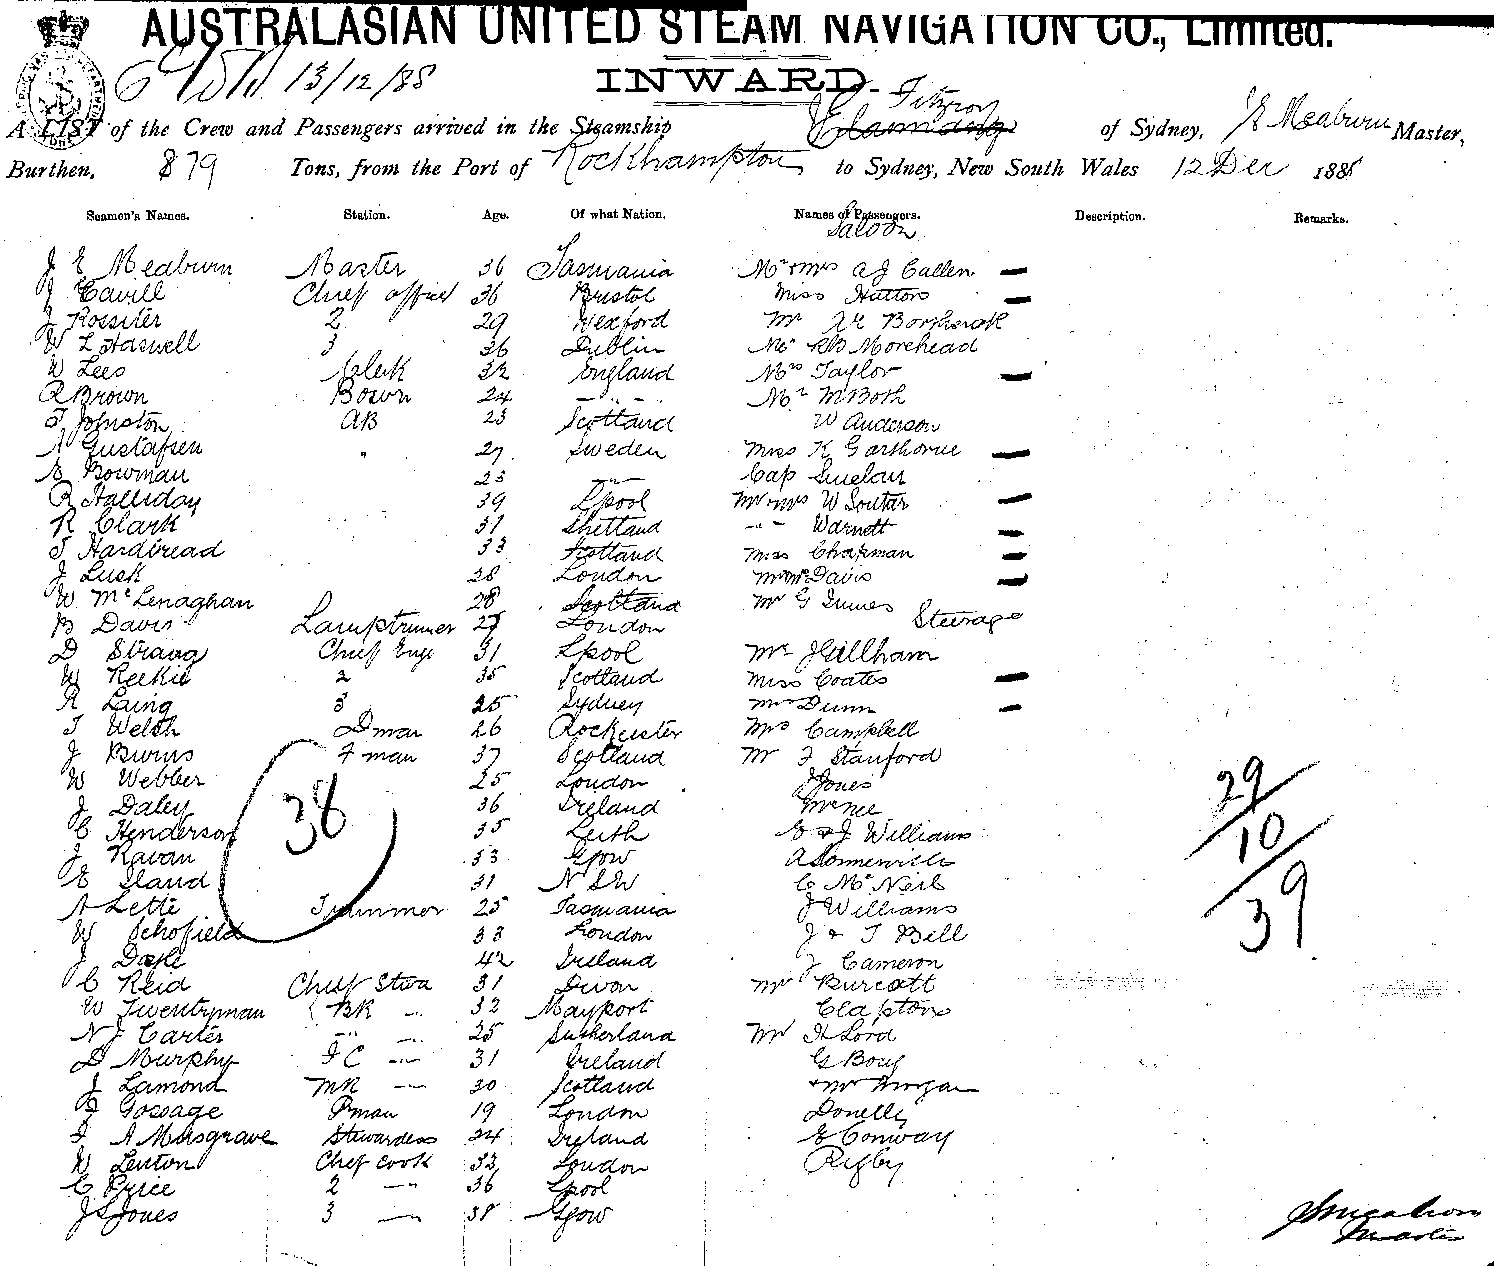 AUSTRALASIAN UNITED STEAM NAVIGATION CO., Limited.
13/12/88
INWARD.
Fitzroy
A LIST of the Crew and Passengers arrived in the Steamship of Sydney, J E Meaburn Master,
Burthen, 879 Tons, from the Port of Rockhampton to Sydney, New South Wales 12 Dec 1888
Seamen's Names. Station. Age. Of what Nation. Names of Passengers. Description. Remarks.
Saloon
J E Meaburn Master 36 Tasmania Mr & Mrs A J Callen —
J Cavill Chief officer 36 Bristol Miss Hutton —
J Rossiter 2 29 Wexford Mr
W L Haswell 3 26 Dublin Mr R D Morehead
W Lees Clerk 32 England Mrs Taylor —
R Brown Bosun 24 — " — Mr M Both
T Johnston AB 23 Scotland W Anderson
A Gustafsen " 27 Sweden Miss K Garthorne —
E Bowman 23 — " — Cap Sinclair
R Halliday 39 Lpool Mr & Mrs W Soutar —
R Clark 31 Shetland — " — Warnett —
T Hardbread 33 Scotland Miss Chapman —
J Lusk 28 London Davis —
W McLenaghan 28 Scotland Mr G Innes
Steerage
B Davis Lamptrimmer 27 London
D Strang Chief Engr 31 Lpool Mr J Gillham
W Reekie 2 35 Scotland Miss Coates —
R Laing 3 25 Sydney Mrs Dunn —
T Welsh Dman 26 Rochester Mrs Campbell
J Burns Fman 37 Scotland Mr F Stanford
W Webber 25 London J Jones
J Daley 36 Ireland McNee
C Henderson 35 Leith E & J Williams
J Ravan 33 Gpow A Sommerville
E Iland 31 N S W C McNeil
A Lette Trimmer 25 Tasmania J Williams
W Schofield 33 London J & T Bell
J Doyle 42 Ireland J Cameron
C Reid Chief Stwd 31 Devon Mr Burcott
W Twentyman BR — 32 Mayport Clapton
N J Carter — " — 25 Sutherland Mr H Lord
D Murphy F C — 31 Ireland G Bouy
J Lamond MR — 30 Scotland & Mr Morgan
J Gossage Pman 19 London Donelly
A Musgrave Stewardess 34 Ireland E Conway
W Lenton Chef Cook 33 London Rigby
C Price 2 — 36 Lpool
J S Jones 3 — 38 Gpow
38
29
10
39
J Meaburn
Master